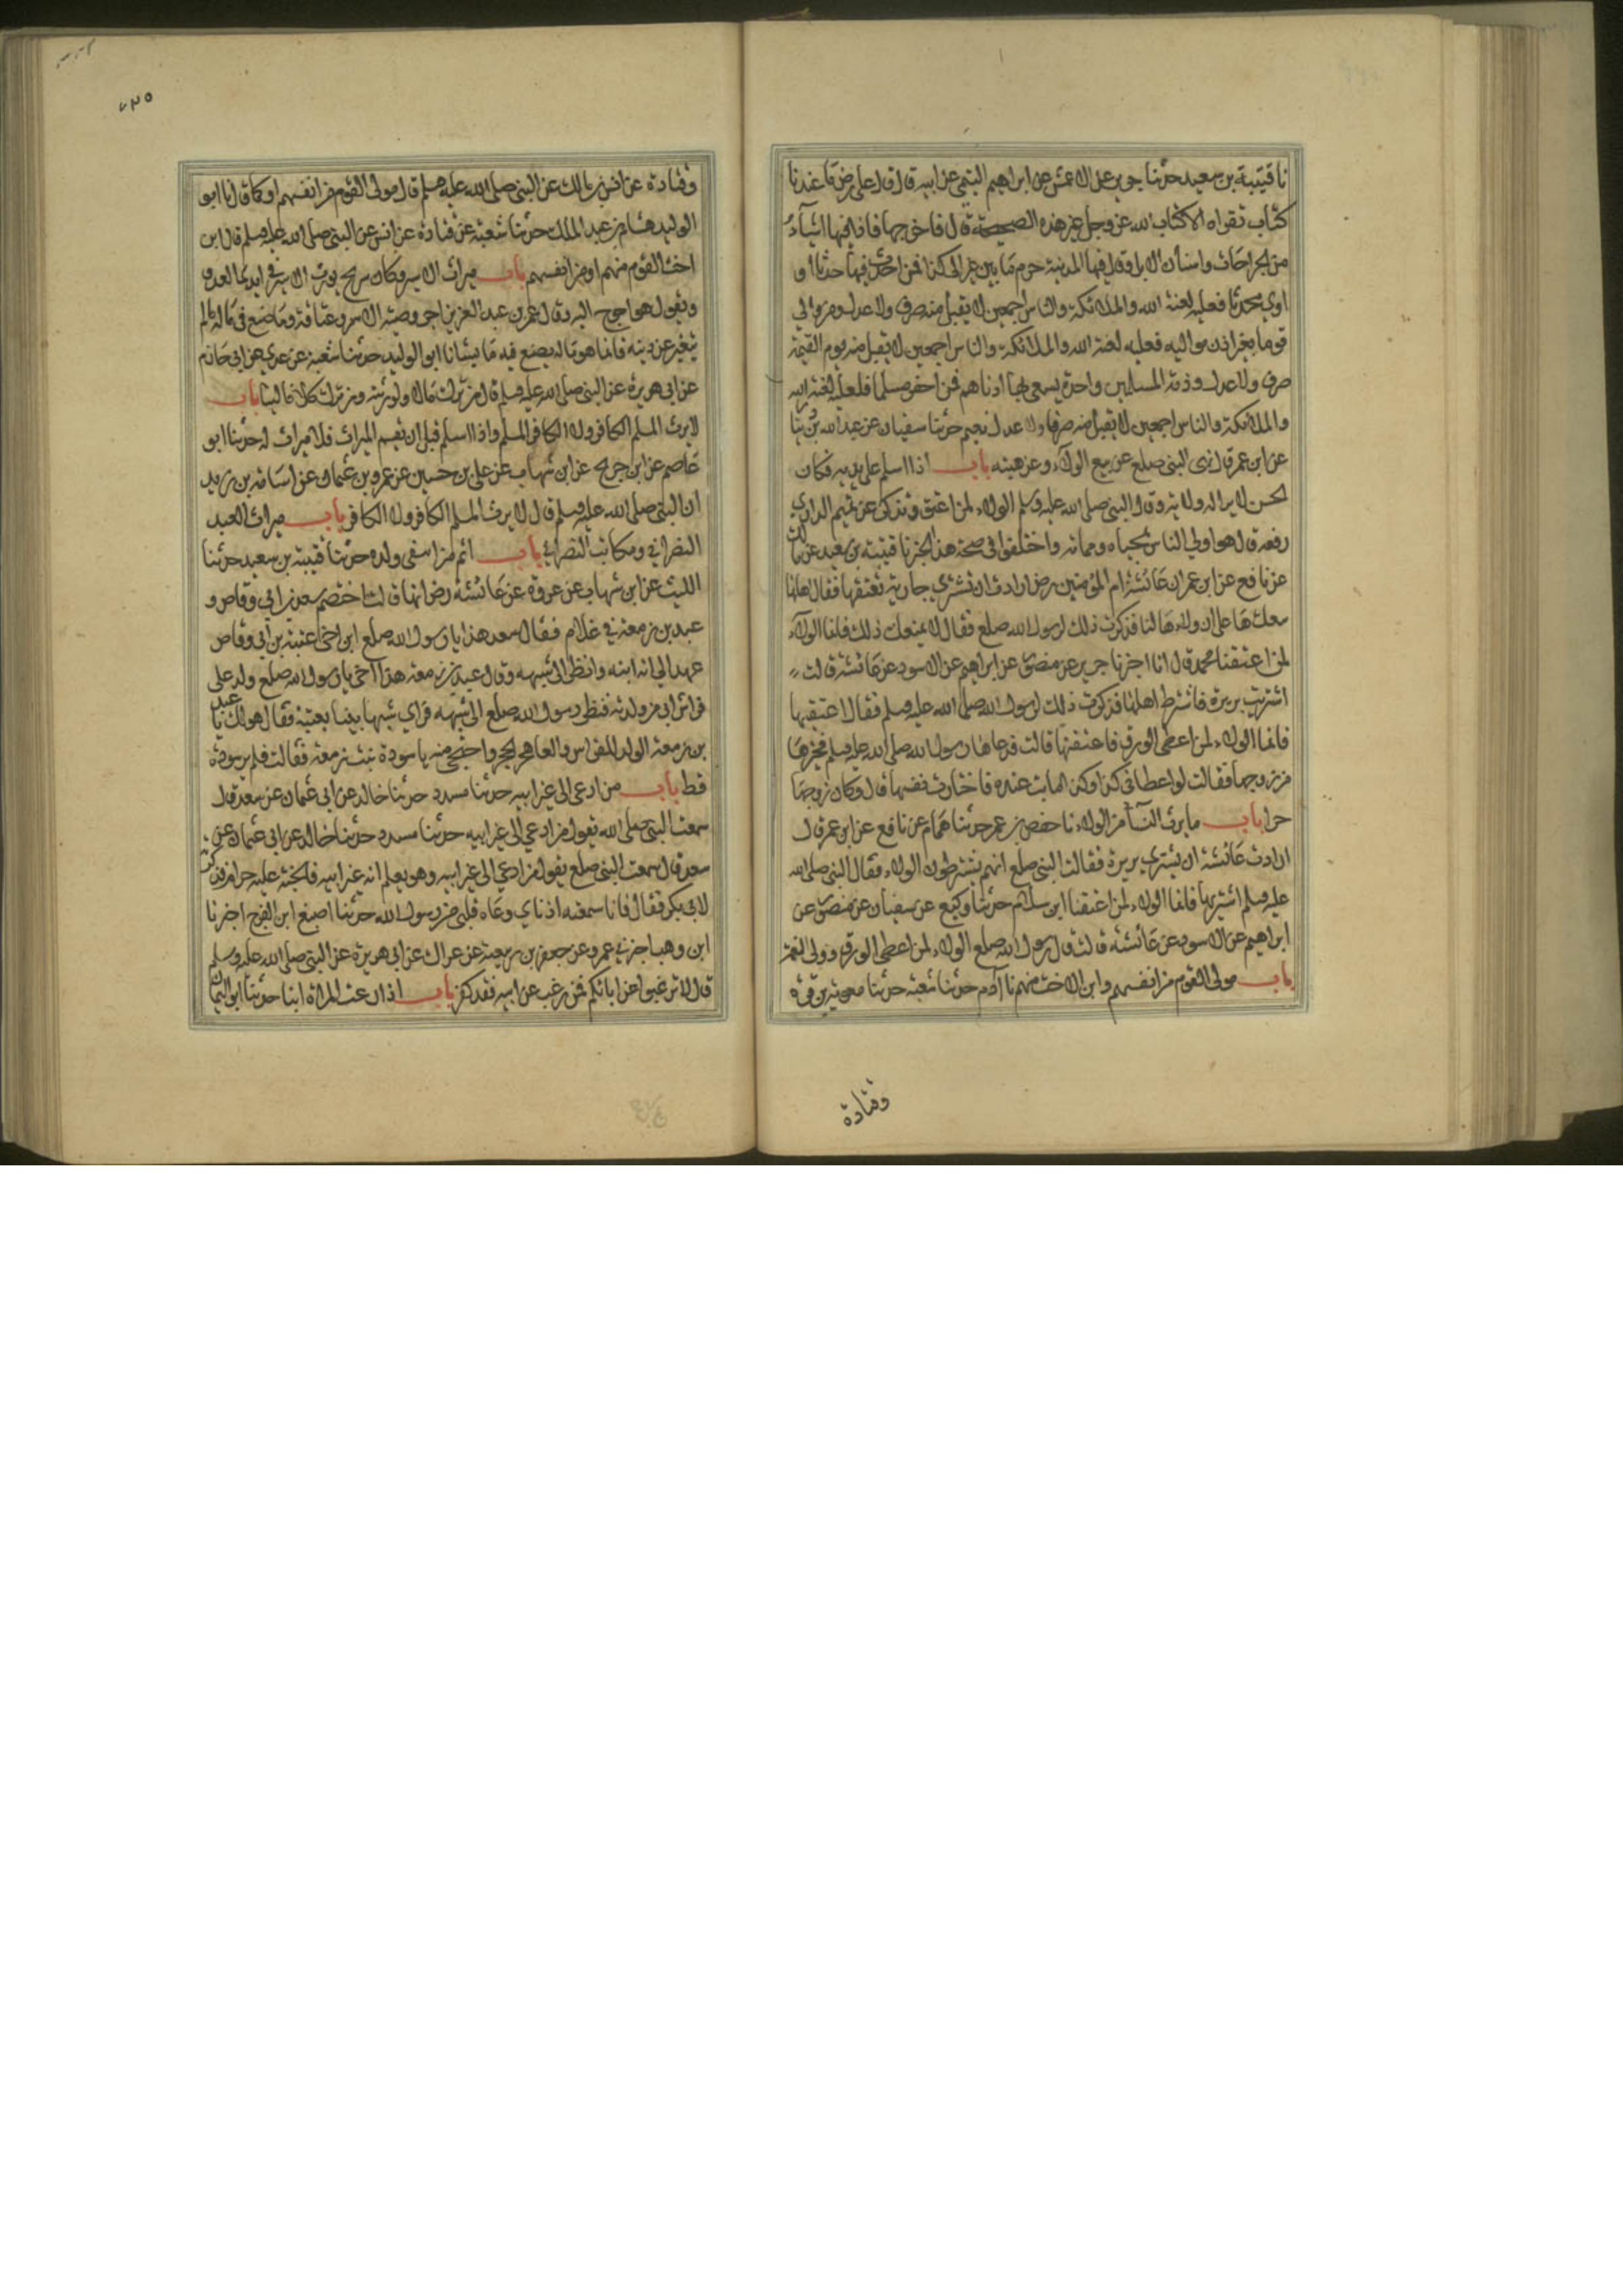 نا قتيبة بن سعيد حدثنا جرير عن الاعمش عن ابراهيم التيمي عن ابيه قال قال علي رض ما عندنا
كتاب نقراه الا كتاب الله عز وجل غير هذه الصحيفة قال فاخرجها فاذا فيها اشيآء
من الجراحات واسنان الابل وقال فيها المدينة حرم ما بين عير الى كذا فمن احدث فيها حدثا او
اوى محدثا فعليه لعنة الله والملائكة والناس اجمعين لا يقبل منه صرف ولا عدل ومن والى
قوما بغير اذن مواليه فعليه لعنة الله والملائكة والناس اجمعين لا يقبل منه يوم القيمة
صرف ولا عدل وذمة المسلمين واحدة يسعى بها ادناهم فمن اخفر مسلما فعليه لعنة الله
والملائكة والناس اجمعين لا يقبل منه صرفا ولا عدل نعيم حدثنا سفيان عن عبد الله بن دينار
عن ابن عمر قال نهى النبي صلعم عن بيع الولآء وعن هبته باب اذا اسلم على يديه فكان
الحسن لا يرى له ولاية وقال النبي صلى الله عليه وسلم الولاء لمن اعتق ويذكر عن تميم الداري
رفعه قال هو اولى الناس بمحياه ومماته واختلفوا في صحة هذا الخبر نا قتيبة بن سعيد عن مالك
عن نافع عن ابن عمر ان عائشة ام المؤمنين رض ارادت ان تشتري جارية تعتقها فقال اهلها
نبيعكها على ان ولاءها لنا فذكرت ذلك لرسول الله صلعم فقال لا يمنعك ذلك فانما الولآء
لمن اعتق نا محمد قال انا اخبرنا جرير عن منصور عن ابراهيم عن الاسود عن عائشة قالت
اشتريت بريرة فاشترط اهلها فذكرت ذلك لرسول الله صلى الله عليه وسلم فقال اعتقيها
فانما الولاء لمن اعطى الورق فاعتقتها قالت فدعاها رسول الله صلى الله عليه وسلم فخيرها
من زوجها فقالت لو اعطاني كذا وكذا ما بت عنده فاختارت نفسها قال وكان زوجها
حرا باب ما يرث النسآ من الولاء نا حفص بن عمر حدثنا همام عن نافع عن ابن عمر قال
ارادت عائشة ان تشتري بريرة فقالت للنبي صلعم انهم يشترطون الولاء فقال النبي صلى الله
عليه وسلم اشتريها فانما الولاء لمن اعتق نا ابن سلام حدثنا وكيع عن سفيان عن منصور عن
ابراهيم عن الاسود عن عائشة قالت قال رسول الله صلعم الولاء لمن اعطى الورق وولى النعمة
باب مولى القوم من انفسهم وابن الاخت منهم نا آدم حدثنا شعبة حدثنا معوية بن قرة
وقتادة
٧٣٥
وقتادة عن انس بن مالك عن النبي صلى الله عليه وسلم قال مولى القوم من انفسهم او كما قال نا ابو
الوليد هشام بن عبد الملك حدثنا شعبة عن قتادة عن انس عن النبي صلى الله عليه وسلم قال ابن
اخت القوم منهم او من انفسهم باب ميراث الاسير وكان شريح يورث الاسير في ايدي العدو
ويقول هو احوج اليه وقال عمر بن عبد العزيز اجز وصية الاسير وعتاقته وما صنع في ماله ما لم
يتغير عن دينه فانما هو ماله يصنع فيه ما يشا نا ابو الوليد حدثنا شعبة عن عدي عن ابي حازم
عن ابي هريرة عن النبي صلى الله عليه وسلم قال من ترك مالا فلورثته ومن ترك كلا فالينا باب
لا يرث المسلم الكافر ولا الكافر المسلم واذا اسلم قبل ان يقسم الميراث فلا ميراث له حدثنا ابو
عاصم عن ابن جريج عن ابن شهاب عن علي بن حسين عن عمرو بن عثمان عن اسامة بن زيد
ان النبي صلى الله عليه وسلم قال لا يرث المسلم الكافر ولا الكافر باب ميراث العبد
النصراني ومكاتب النصراني باب اثم من انتفى ولده حدثنا قتيبة بن سعيد حدثنا
الليث عن ابن شهاب عن عروة عن عائشة رض انها قالت اختصم سعد بن ابي وقاص و
عبد بن زمعة في غلام فقال سعد هذا يا رسول الله صلعم ابن اخي عتبة بن ابي وقاص
عهد الي انه ابنه وانظر الى شبهه وقال عبد بن زمعة هذا اخي يا رسول الله صلعم ولد على
فراش ابي من وليدته فنظر رسول الله صلعم الى شبهه فراى شبها بينا بعتبة فقال هو لك يا عبد
بن زمعة الولد للفراش وللعاهر الحجر واحتجبي منه يا سودة بنت زمعة فقالت فلم ير سودة
قط باب من ادعى الى غير ابيه حدثنا مسدد حدثنا خالد عن ابي عثمان عن سعد قال
سمعت النبي صلى الله يقول من ادعى الى غير ابيه حدثنا مسدد حدثنا خالد عن ابي عثمان عن
سعد قال سمعت النبي صلعم يقول من ادعى الى غير ابيه وهو يعلم انه غير ابيه فالجنة عليه حرام فذكرته
لابي بكر فقال فانا سمعته اذناي ووعاه قلبي من رسول الله حدثنا اصبغ ابن الفرج اخبرنا
ابن وهب اخبرني عمرو عن جعفر بن ربيعة عن عراك عن ابي هريرة عن النبي صلى الله عليه وسلم
قال لا ترغبوا عن ابائكم فمن رغب عن ابيه فقد كفر باب اذا ادعت المراة ابنا حدثنا ابو اليمان